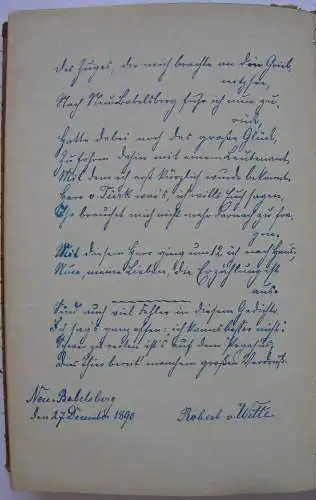 des Zuges, der mich brachte an den Grieb-
nitzsee,
Nach Neu Babelsberg fuhr ich nun zu-
rück,
Hatte dabei noch das große Glück,
Zu fahren dahin mit einem Lieutenant,
Mit dem ich erst kürzlich wurde bekannt.
Herr v. Türk war's, ich will's Euch sagen,
Ihr brauchet mich nicht mehr darnach zu fra-
gen.
Mit diesem Herr ging um 12 ich nach Haus,
Nun, meine Lieben, die Erzählung ist
aus.
Sind auch viel Fehler in diesem Gedicht
Ich sag's ganz offen: ich kann's besser nicht!
Schwer zu reiten ist's auf dem Pegasus
Dies Thier bereit manchem großen Verdruß.
Neu-Babelsberg
den 27 December 1890
Robert v. Witte